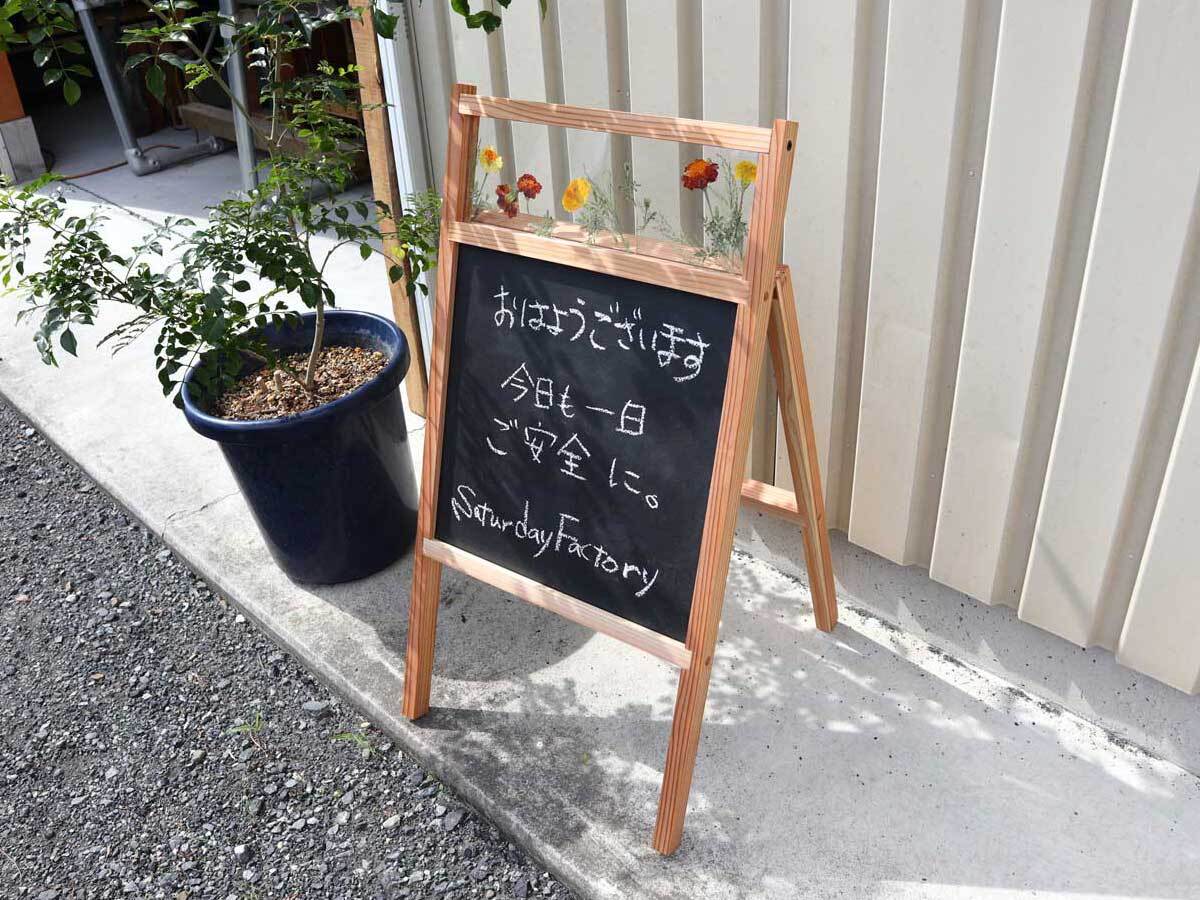 おはようございます
今日も一日
ご安全に。
Saturday Factory